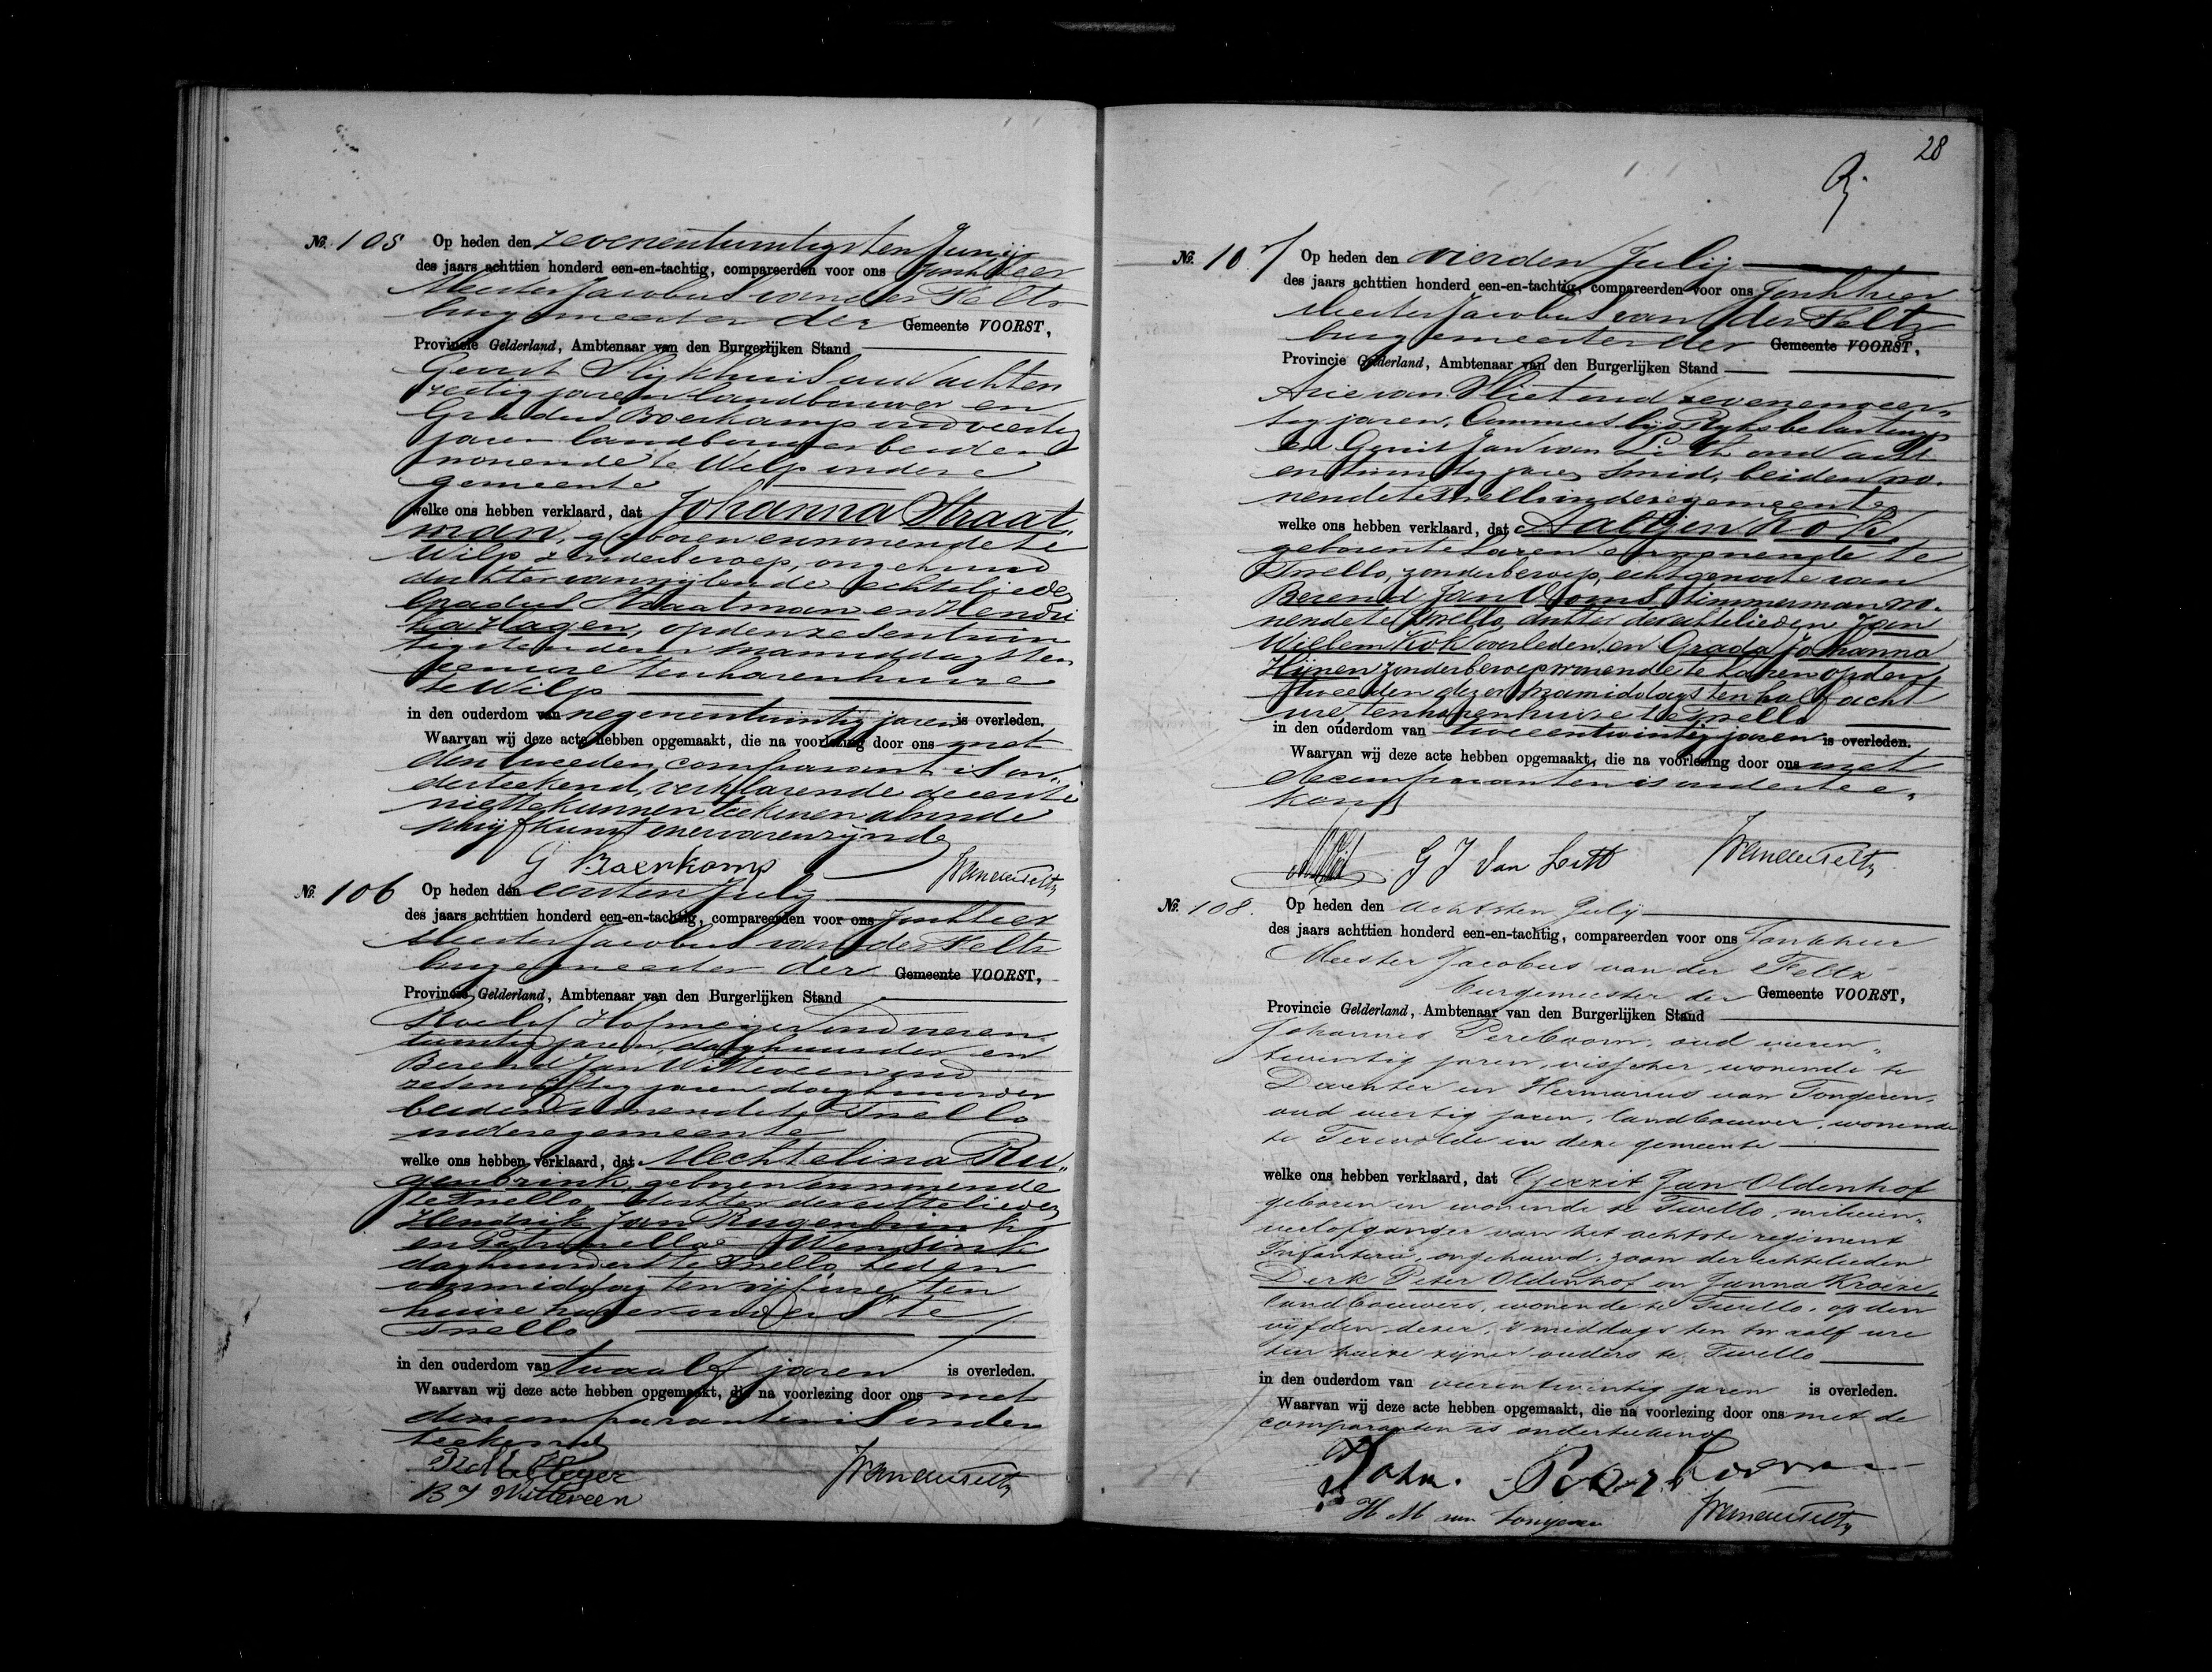 No. 105 Op heden den zevenentwintigsten Junij
des jaars achttien honderd een-en-tachtig, compareerden voor ons Jonkheer
Meester Jacobus van der Feltz
burgemeester der Gemeente VOORST,
Provincie Gelderland, Ambtenaar van den Burgerlijken Stand
Gerrit Slijkhuis oud achten
zestig jaren landbouwer en
Gradus Boerkamp oud veertig
jaren landbouwer beiden
wonende te Wilp in deze
gemeente
welke ons hebben verklaard, dat Johanna Straat
man, geboren en wonende te
Wilp zonder beroep, ongehuwd
dochter van wijlen de echtelieden
Gradus Straatman en Hendri
ka Hagen, op den zesentwin
tigsten dezer namiddags ten
ure ten haren huize
te Wilp
in den ouderdom van negenentwintig jaren is overleden.
Waarvan wij deze acte hebben opgemaakt, die na voorlezing door ons met
den tweeden comparant is on-
derteekend, verklarende de eerste
niet te kunnen teekenen als in de
schrijfkunst onervaren zijnde
G Boerkamp
No. 106 Op heden den eersten Julij
des jaars achttien honderd een-en-tachtig, compareerden voor ons Jonkheer
Meester Jacobus van der Feltz
burgemeester der Gemeente VOORST,
Provincie Gelderland, Ambtenaar van den Burgerlijken Stand
Roelof Hofmeijer oud
twintig jaren, daghuurder en
Berend Jan Witteveen oud
zesenvijftig jaren daghuurder
beiden wonende te Twello
in deze gemeente
welke ons hebben verklaard, dat Mechtelina Ru-
genbrink, geboren en wonende
te Twello dochter der echtelieden
Hendrik Jan Rugenbrink
en Petronella Wensink
daghuurders te Twello heden
voormiddag ten vijf ure ten
huize harer ouders te
Twello
in den ouderdom van twaalf jaren is overleden.
Waarvan wij deze acte hebben opgemaakt, die na voorlezing door ons met
de comparanten is onder
teekend
B J Witteveen
28
No. 107 Op heden den vierden Julij
des jaars achttien honderd een-en-tachtig, compareerden voor ons Jonkheer
Meester Jacobus van der Feltz
burgemeester der Gemeente VOORST,
Provincie Gelderland, Ambtenaar van den Burgerlijken Stand
Arie van Vliet oud zevenenveer-
tig jaren, Commies bij 's Rijks belastingen
en Gerrit Jan van Lith oud acht
en twintig jaren smid, beiden wo-
nende te Twello in deze gemeente
welke ons hebben verklaard, dat Aaltjen Kok,
geboren te Laren en wonende te
Twello, zonder beroep, echtgenoote van
Berend Jan timmerman wo-
nende te Twello dochter der echtelieden Jan
Willem Kok overleden en Grada Johanna
zonder beroep wonende te Laren op den
tweeden dezer namiddags ten half acht
ure, ten haren huize te Twello
in den ouderdom van tweeentwintig jaren is overleden.
Waarvan wij deze acte hebben opgemaakt, die na voorlezing door ons met
de comparanten is onderteе-
kend
G J van Lith
No. 108. Op heden den achtsten Julij
des jaars achttien honderd een-en-tachtig, compareerden voor ons Jonkheer
Meester Jacobus van der Feltz
burgemeester der Gemeente VOORST,
Provincie Gelderland, Ambtenaar van den Burgerlijken Stand
Johannes Pereboom, oud vieren-
twintig jaren, visscher, wonende te
Deventer en Hermanus van Tongeren,
oud veertig jaren, landbouwer, wonende
te Terwolde in deze gemeente
welke ons hebben verklaard, dat Gerrit Jan Oldenhof
geboren en wonende te Twello, milicien-
verlofganger van het achtste regiment
Infanterie, ongehuwd, zoon der echtelieden
Derk Peter Oldenhof en Janna Kroeze,
landbouwers, wonende te Twello, op den
vijfden dezer, 's middags ten twaalf ure
ten huize zijner ouders te Twello
in den ouderdom van vierentwintig jaren is overleden.
Waarvan wij deze acte hebben opgemaakt, die na voorlezing door ons met de
comparanten is onderteekend
Joha.
H M van Tongeren